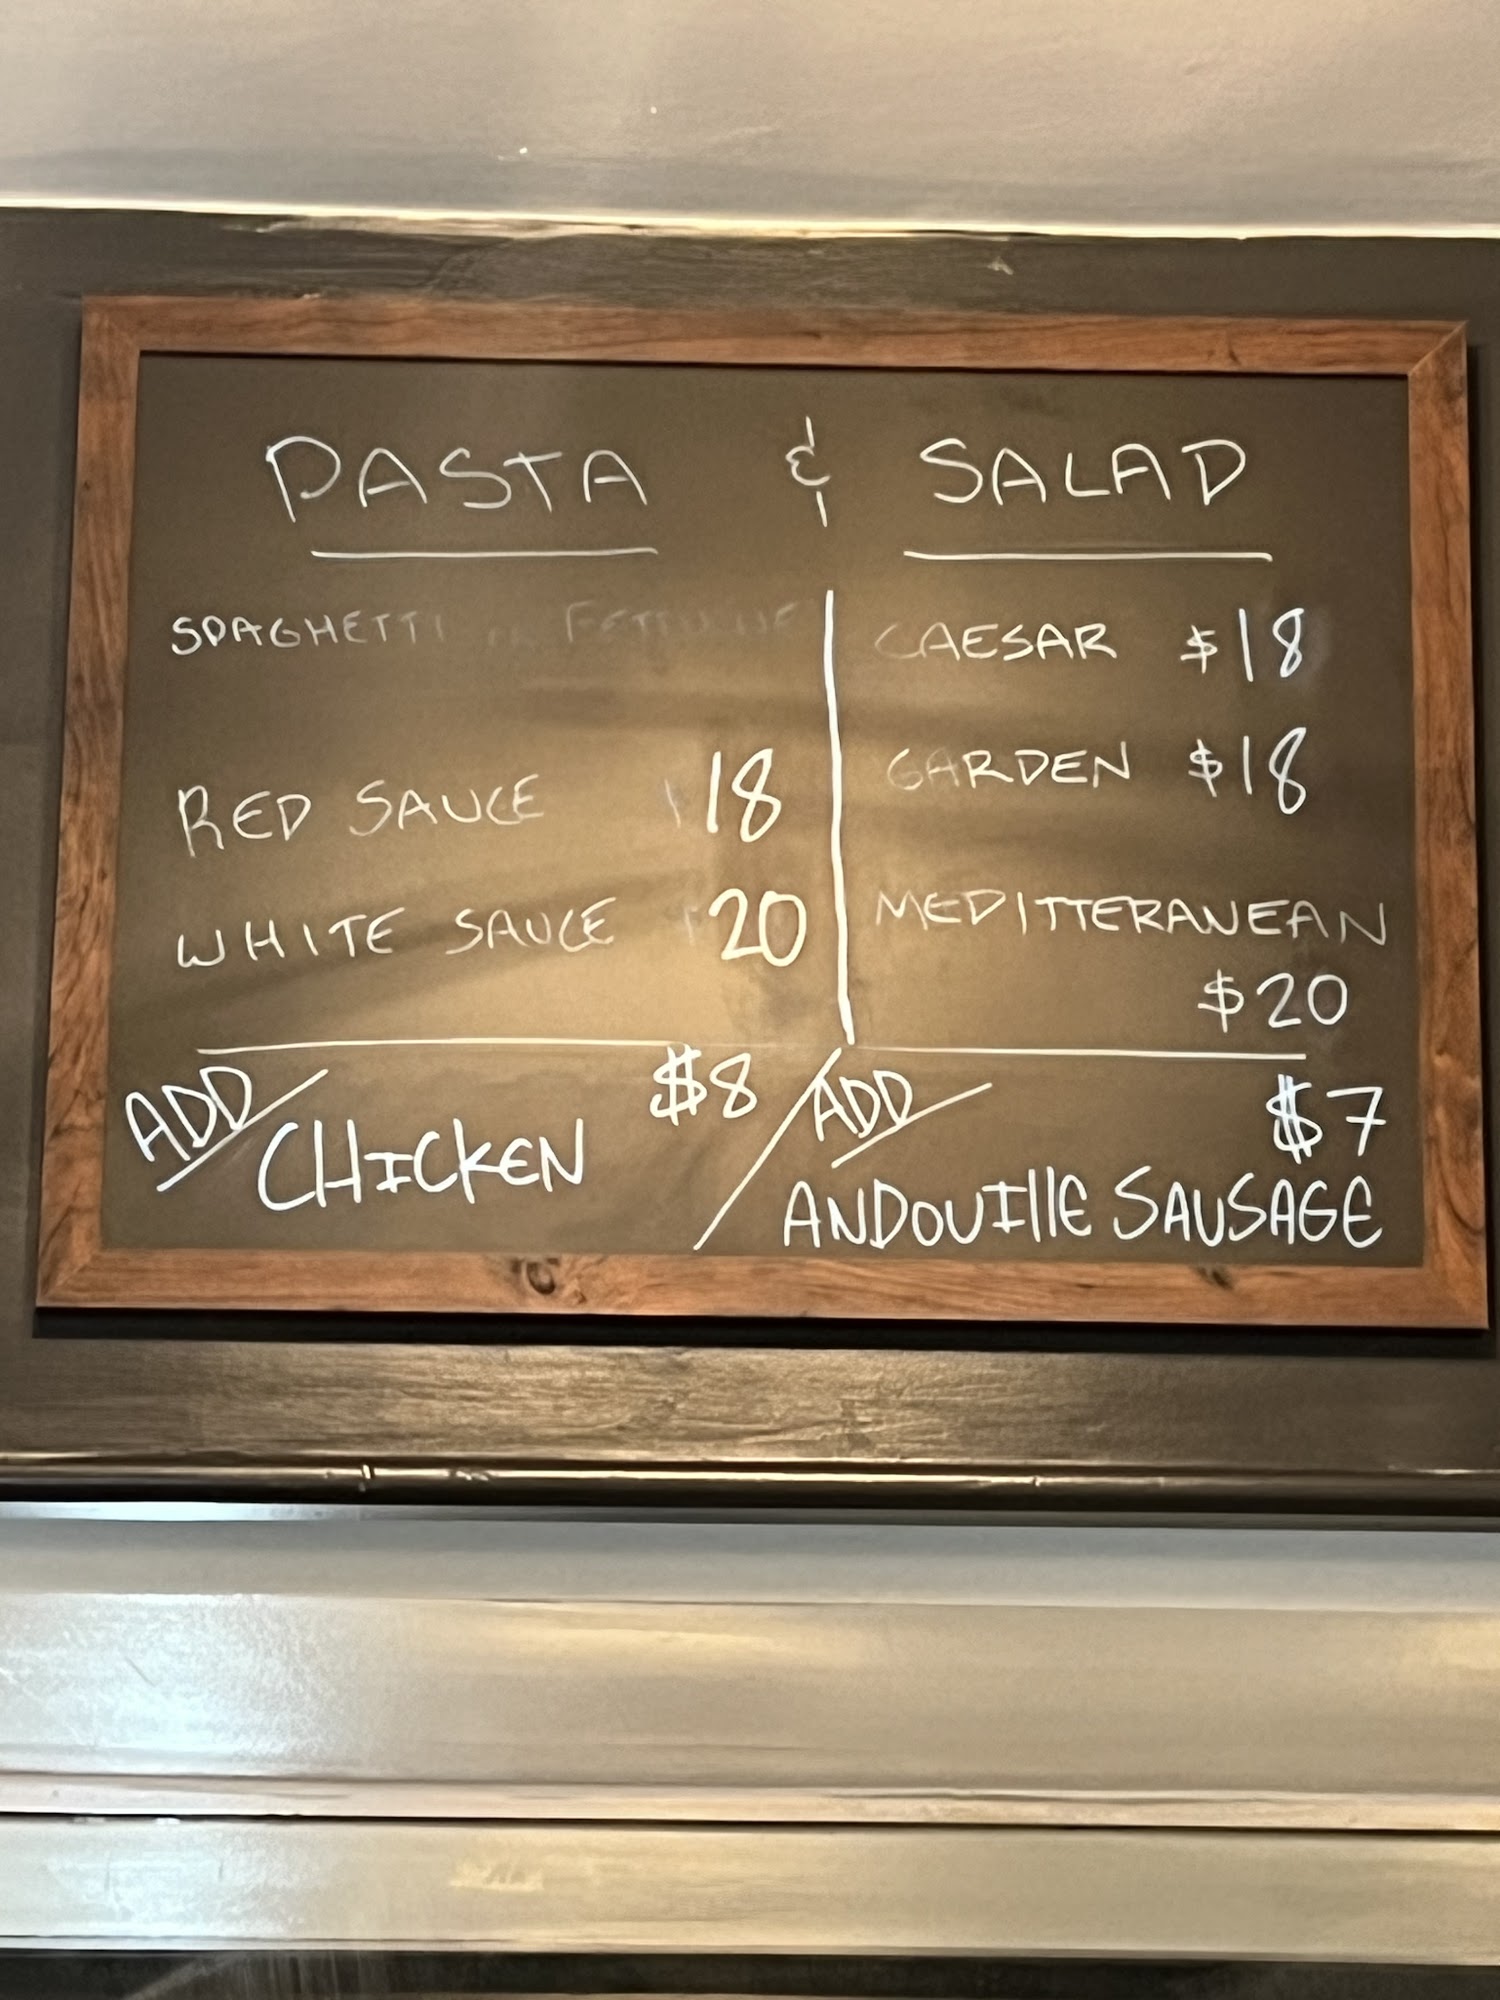 PASTA & SALAD
SPAGHETTI OR
RED SAUCE 18
WHITE SAUCE 20
CAESAR $18
GARDEN $18
MEDITTERANEAN
$20
ADD CHICKEN $8
ADD $7
ANDOUIllE SAUSAGE